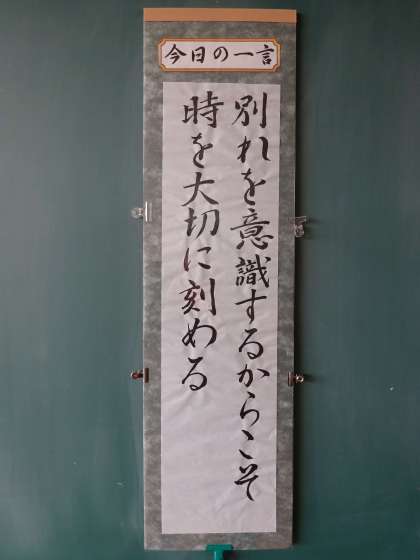 今日の一言
別れを意識するからこそ
時を大切に刻める